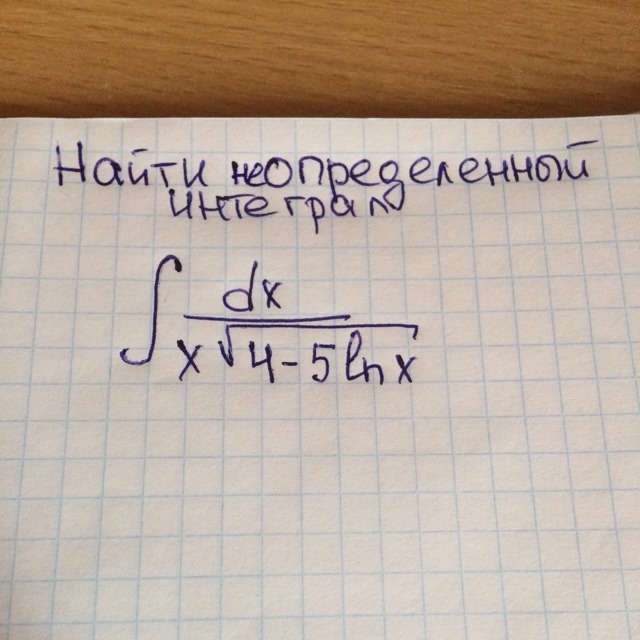 Найти неопределенный
интеграл
∫ dx
x √4-5 ln x